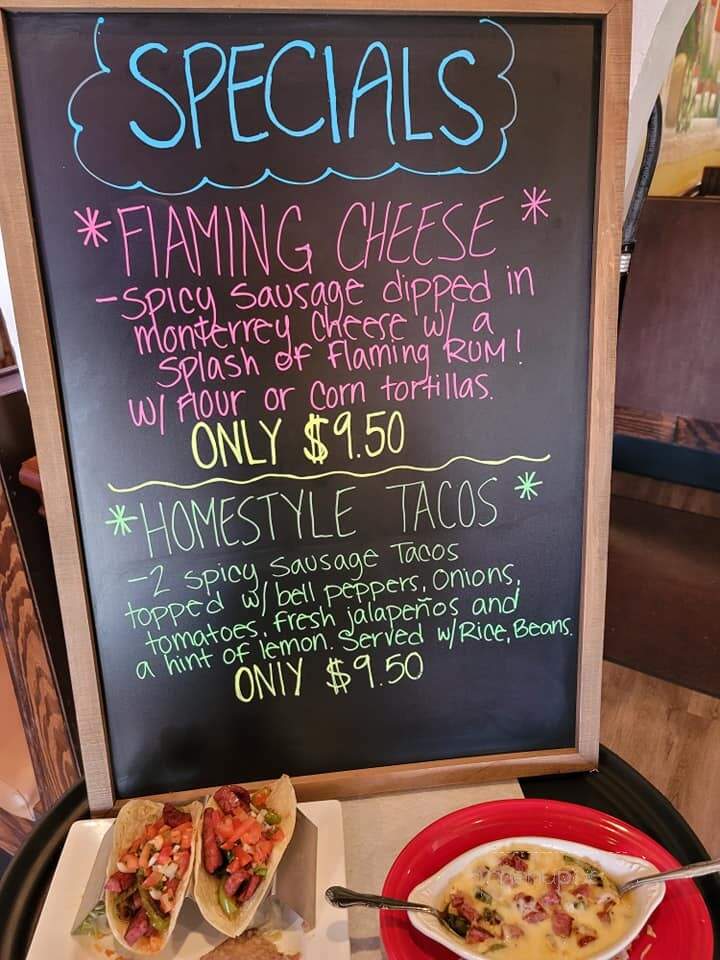 SPECIALS
* FlAMING CHEESE *
- Spicy Sausage dipped in
monterrey Cheese w/ a
Splash of Flaming RUM!
w/ Flour or Corn tortillas.
ONLY $9.50
* HOMESTYLE TACOS *
- 2 Spicy Sausage Tacos
topped w/ bell peppers, onions,
tomatoes, fresh jalapeños and
a hint of lemon. Served w/ Rice, Beans.
ONlY $9.50